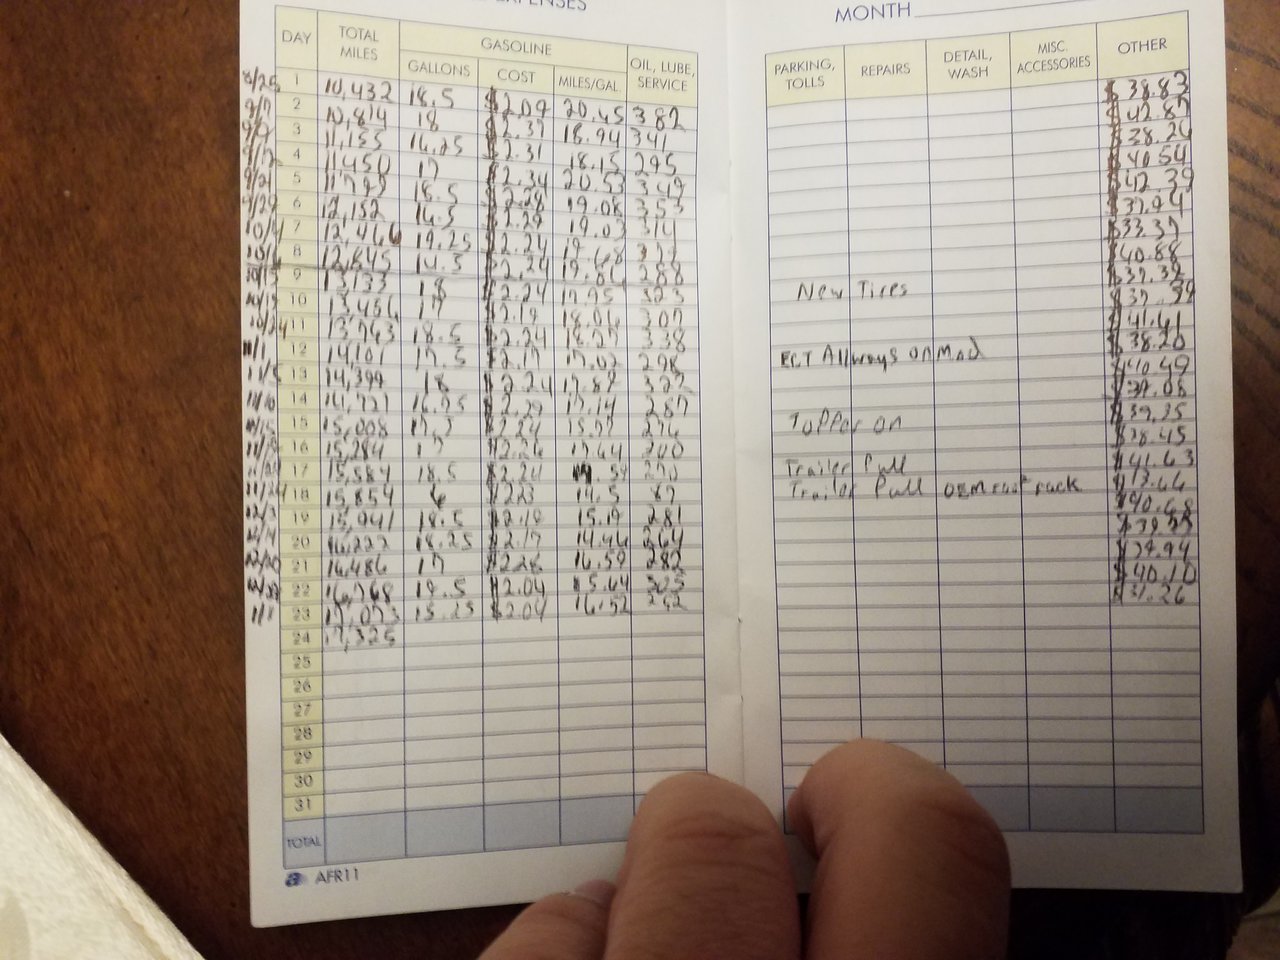 EXPENSES
MONTH
DAY TOTAL MILES GASOLINE OIL, LUBE, SERVICE PARKING, TOLLS REPAIRS DETAIL, WASH MISC. ACCESSORIES OTHER
GALLONS COST MILES/GAL
8/25 1 10,432 18.5 $2.09 20.65 382 $38.83
9/7 2 10,814 18 $2.37 18.94 341 $42.87
9/9 3 11,155 16.25 $2.31 18.15 295 $38.24
9/17 4 11450 17 $2.34 20.53 349 $40.54
9/21 5 11,799 18.5 $2.28 19.08 353 $42.39
9/29 6 12,152 16.5 $2.29 19.03 314 $37.94
10/4 7 12,466 19.25 $2.24 $33.37
10/6 8 12,845 14.5 $2.24 288 $40.88
10/13 9 13133 18 $2.24 17.95 323 New Tires $39.32
10 13,456 17 $2.19 18.06 307
10/24 11 13,763 18.5 $2.24 18.27 338 $41.41
11/1 12 14,101 17.5 $2.17 17.02 298 ECT Allways on Mod $38.20
11/5 13 14,399 18 $2.24 17.88 322
11/10 14 14,721 16.75 $2.29 17.14 287
11/15 15 15,008 $2.24 15.77 276 Topper on $39.25
16 15,284 17 $2.26 17.64 300 $38.45
17 15,584 18.5 $2.24 270 Trailer Pull $41.63
11/24 18 15,854 6 $2.23 14.5 87 Trailer Pull OEM roof rack
12/3 19 15,941 18.5 $2.19 15.19 281
20 16,222 18.25 $2.17 14.46 264
12/20 21 16,486 17 $2.28 16.59 282
22 16,768 19.5 $2.04 15.64 305 $40.10
1/1 23 17,073 15.25 $2.04 16.52 252 $31.26
24 17,325
25
26
27
28
29
30
31
TOTAL
AFR11